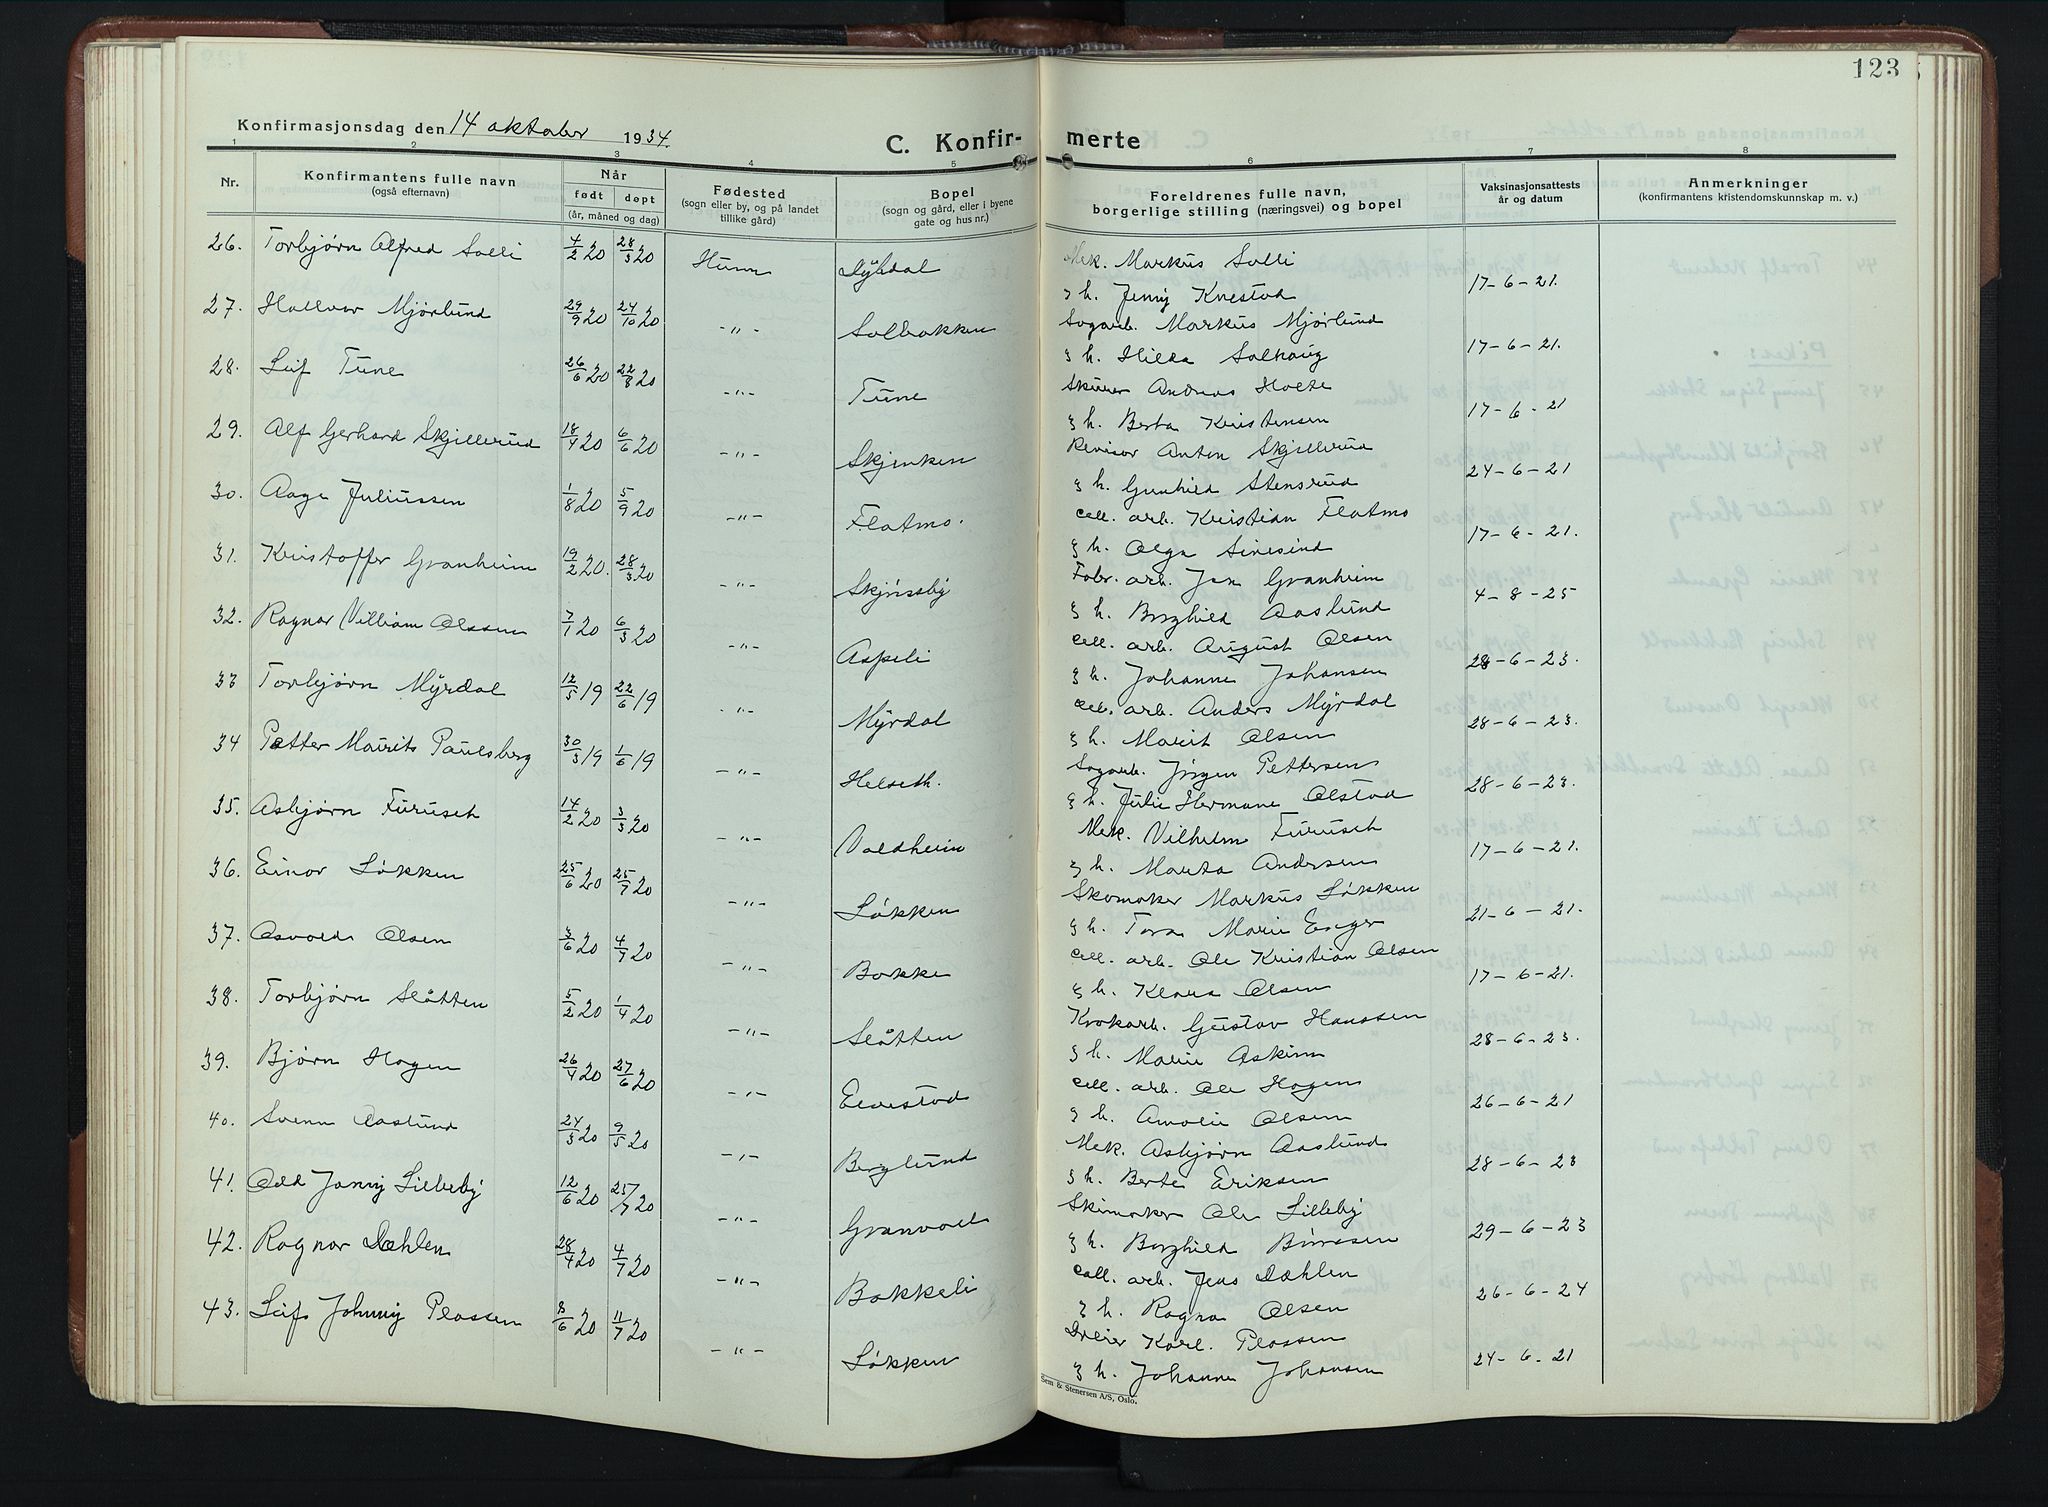 123
Konfirmasjonsdag den 14 oktober 1934.
C. Konfir- merte
1 2 3 4 5 6 7 8
Nr.
Konfirmantens fulle navn
(også efternavn)
Når
født døpt
(år, måned og dag)
Fødested
(sogn eller by, og på landet
tillike gård)
Bopel
(sogn og gård, eller i byene
gate og hus nr.)
Foreldrenes fulle navn,
borgerlige stilling (næringsvei) og bopel
Vaksinasjonsattests
år og datum
Anmerkninger
(konfirmantens kristendomskunnskap m. v.)
26. Torbjørn Alfred Solli 4/2 20 28/3 20 Hunn Dybdal Mek. Markus Solli
& h. Jenny Knestad 17-6-21.
27. Hallvar Mjørlund 29/9 20 24/10 20 -"- Solbakken Sagarb. Markus Mjørlund
& h. Hilda Solhaug 17-6-21.
28. Leif Tune 26/6 20 22/8 20 -"- Tune Andreas Holte
& h. Berta Kristensen 17-6-21
29. Alf Gerhard Skjellerud 18/4 20 6/6 20 -"- Skjenken Revisor Anton Skjellerud
& h. Gunhild Stensrud 24-6-21
30. Aage Juliussen 1/8 20 5/9 20 -"- Flatmo. cell. arb. Kristian Flatmo
& h. Olga 17-6-21.
31. Kristoffer Granheim 19/2 20. 28/3 20 -"- Fabr. arb. Jan Granheim
& h. Borghild Aaslund 4-8-25
32. Ragnar William Olssen 7/1 20 6/3 20 -"- Aspeli cell. arb. August Olsen
& h. Johanne Johansen 28-6-23.
33 Torbjørn Myrdal 12/5 19 22/6 19 -"- Myrdal cell. arb. Anders Myrdal
& h. Marit Olsen 28-6-23.
34 Petter Maurits Paulsberg 30/3 19 1/6 19 -"- Helseth. Sagarb. Jørgen Pettersen
& h. Julie Hermane Olstad 28-6-23.
35. Asbjørn Furuseth 14/2 20 3/3 20 -"- Valdheim Mek. Vilhelm Furuseth
& h. Marta Andersen 17-6-21.
36. Einar Løkken 25/6 20 25/7 20 -"- Løkken Skomaker Markus Løkken
& h. Tora Marie Enger 21-6-21.
37. Osvald Olsen 3/6 20 4/7 20 -"- Bakke cell. arb. Ole Kristian Olsen
& h. Klara Olsen 17-6-21.
38. Torbjørn Slåtten 5/2 20 1/4 20 -"- Slåtten Krokarb. Gustav Hanssen
& h. Marie Askim 28-6-23.
39. Bjørn Hagen 26/4 20 27/6 20 -"- Elvestad cell. arb. Ole Hagen
& h. Amalie Olsen 26-6-21
40. Svenn Aaslund 24/3 20 9/5 20 -"- Berglund Mek. Asbjørn Aaslund
& h. Berte Eriksen 28-6-23
41. Odd Jonny Lilleby 12/6 20 25/7 20 -"- Granvold Skimaker Ole Lilleby
& h. Borghild 29-6-23
42. Ragnar Dæhlen 28/4 20 4/7 20 -"- Bakkeli cell. arb. Jens Dæhlen
& h. Ragna Olsen 26-6-24
43. Leif Johnny Plassen 8/6 20 11/7 20 -"- Løkken Dreier Karl Plassen
& h. Johanne Johansen 24-6-21
Sem & Stenersen A/S, Oslo.